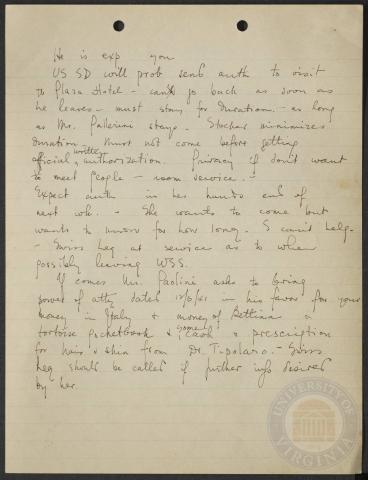 He is exp you
US SD will prob send auth to visit
to Plaza Hotel - can't go back as soon as
he leaves - must stay for duration - as long
as Mr. stays. Stocker minimizes
duration. Must not come before getting
official, written authorization. Privacy if don't want
to meet people - room service. -
Expect auth in her hands end of
next wk. - She wants to come but
wants to know for how long. I can't help -
- Swiss Leg at service as to when
possibly leaving WSS.
If comes Mr. Paolini asks to bring
power of atty dated 12/6/41 in his favor for your
money in Italy & money of Bettina a
tortoise pocketbook & some cash & prescription
for hair & skin from Dr. Tipolaro. - Swiss
Leg should be called if further info desired
by her.
UNIVERSITY OF VIRGINIA